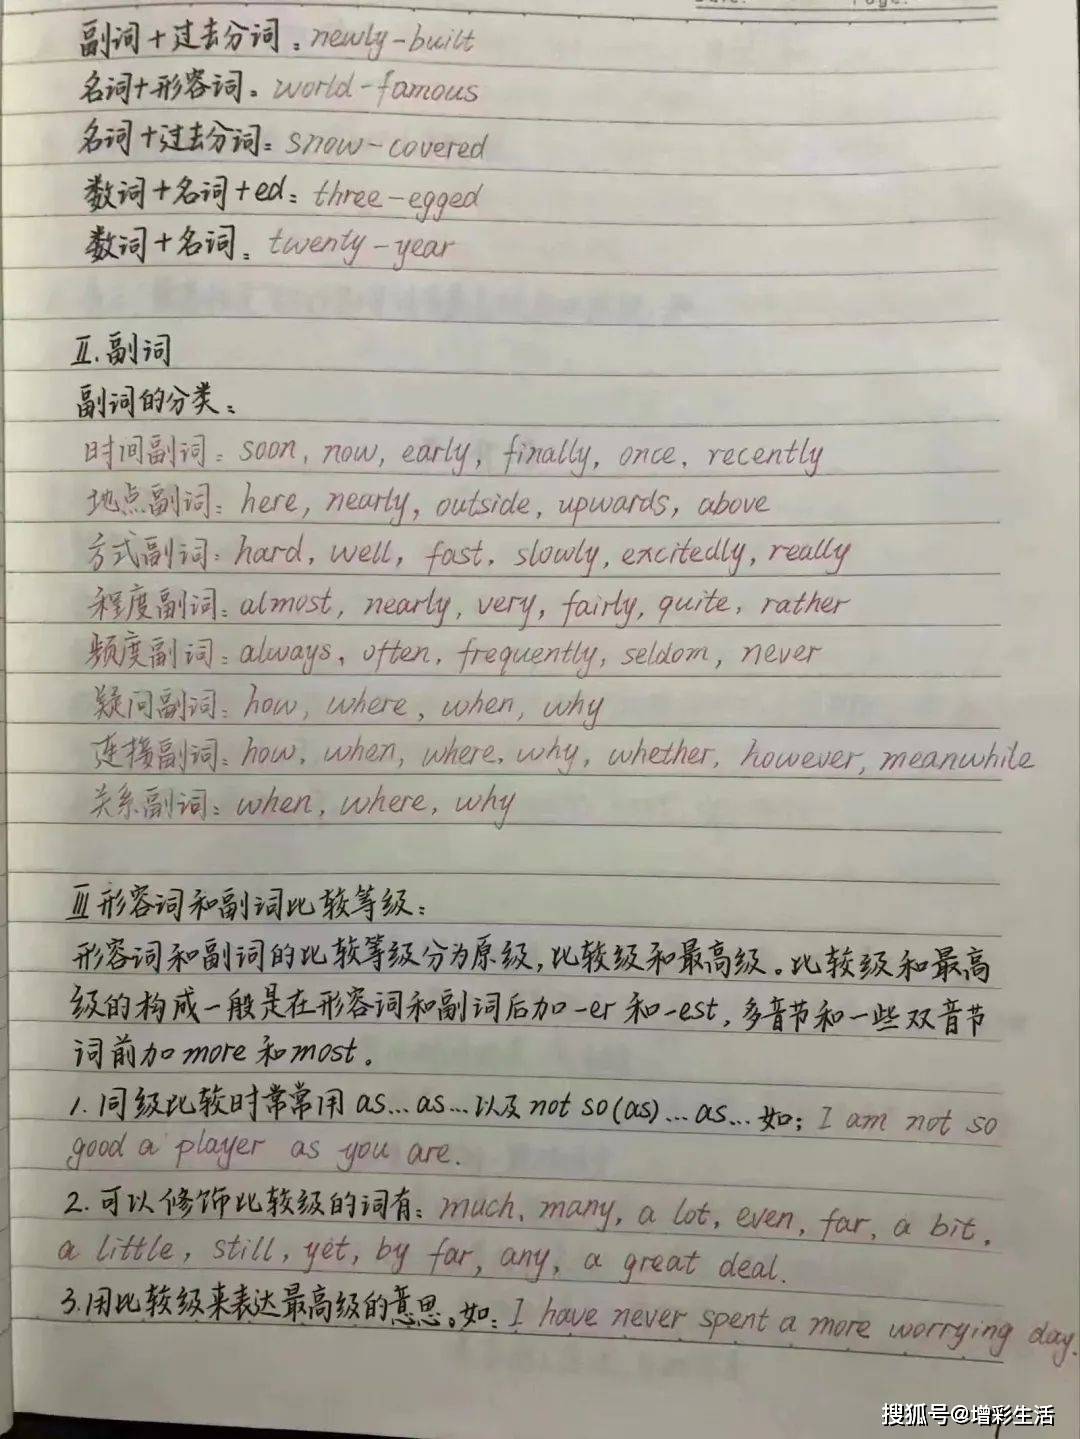 副词+过去分词：newly-built
名词+形容词：world-famous
名词+过去分词：snow-covered
数词+名词+ed：three-egged
数词+名词：twenty-year
Ⅱ.副词
副词的分类：
时间副词：soon, now, early, finally, once, recently
地点副词：here, nearly, outside, upwards, above
方式副词：hard, well, fast, slowly, excitedly, really
程度副词：almost, nearly, very, fairly, quite, rather
频度副词：always, often, frequently, seldom, never
疑问副词：how, where, when, why
连接副词：how, when, where, why, whether, however, meanwhile
关系副词：when, where, why
Ⅲ形容词和副词比较等级：
形容词和副词的比较等级分为原级，比较级和最高级。比较级和最高
级的构成一般是在形容词和副词后加-er和-est，多音节和一些双音节
词前加more和most。
1.同级比较时常常用as…as…以及not so(as)…as…如：I am not so
good a player as you are.
2.可以修饰比较级的词有：much, many, a lot, even, far, a bit,
a little, still, yet, by far, any, a great deal.
3.用比较级来表达最高级的意思。如：I have never spent a more worrying day.
搜狐号@增彩生活